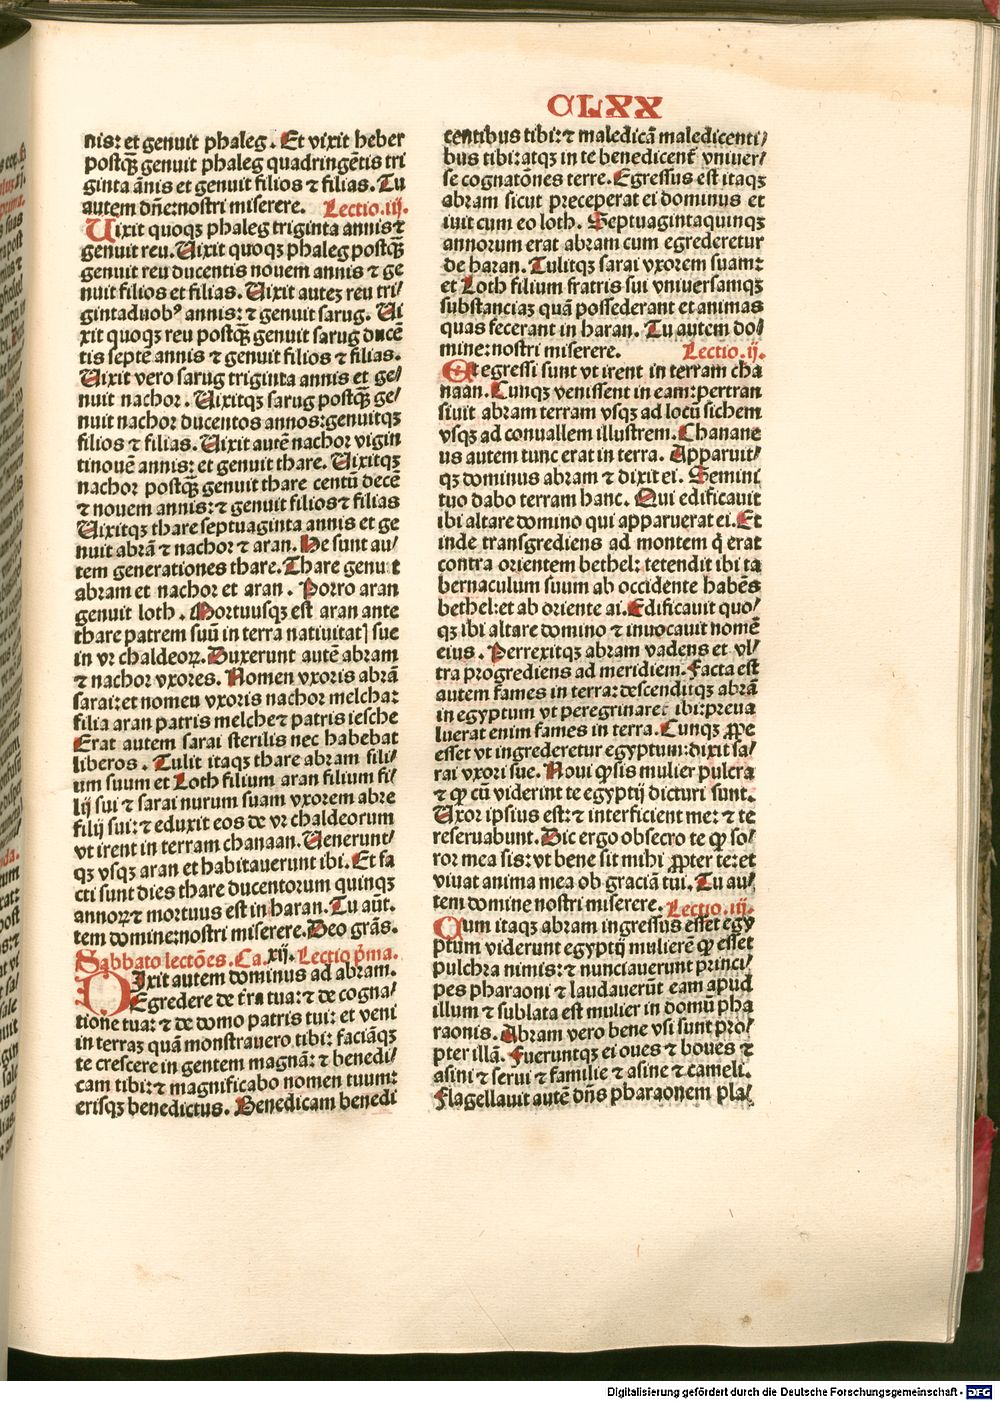 CLXX
nis: et genuit phaleg. Et vixit heber
postqꝫ genuit phaleg quadringētis tri
ginta ānis et genuit filios ⁊ filias. Tu
autem dn̄e: nostri miserere. Lectio.iij.
Uixit quoqꝫ phaleg triginta annis ⁊
genuit reu. Uixit quoqꝫ phaleg postqꝫ
genuit reu ducentis nouem annis ⁊ ge
nuit filios et filias. Uixit auteꝫ reu tri/
gintaduobꝰ annis: ⁊ genuit sarug. Ui
xit quoqꝫ reu postqꝫ genuit sarug ducē
tis septē annis ⁊ genuit filios ⁊ filias.
Uixit vero sarug triginta annis et ge/
nuit nachor. Uixitqꝫ sarug postqꝫ ge/
nuit nachor ducentos annos: genuitqꝫ
filios ⁊ filias. Uixit autē nachor vigin
tinouē annis: et genuit thare. Uixitqꝫ
nachor postqꝫ genuit thare centū decē
⁊ nouem annis: ⁊ genuit filios ⁊ filias
Uixitqꝫ thare septuaginta annis et ge
nuit abrā ⁊ nachor ⁊ aran. He sunt au/
tem generationes thare. Thare genuit
abram et nachor et aran. Porro aran
genuit loth. Mortuusqꝫ est aran ante
thare patrem suū in terra natiuitatꝭ sue
in vr chaldeoꝝ. Duxerunt autē abram
⁊ nachor vxores. Nomen vxoris abrā
sarai: et nomen vxoris nachor melcha:
filia aran patris melche ⁊ patris iesche
Erat autem sarai sterilis nec habebat
liberos. Tulit itaqꝫ thare abram fili/
um suum et Loth filium aran filium fi/
lij sui ⁊ sarai nurum suam vxorem abre
filij sui: ⁊ eduxit eos de vr chaldeorum
vt irent in terram chanaan. Uenerunt/
qꝫ vsqꝫ aran et habitauerunt ibi. Et fa
cti sunt dies thare ducentorum quinqꝫ
annoꝝ ⁊ mortuus est in haran. Tu aūt.
tem domine: nostri miserere. Deo grās.
Sabbato lectōes. Ca.xij. Lectio p̄ma.
Dixit autem dominus ad abram.
Egredere de t̄ra tua: ⁊ de cogna/
tione tua: ⁊ de domo patris tui: et veni
in terraꝫ quā monstrauero tibi: faciāqꝫ
te crescere in gentem magnā: ⁊ benedi/
cam tibi: ⁊ magnificabo nomen tuum:
erisqꝫ benedictus. Benedicam benedi
centibus tibi: ⁊ maledicā maledicenti/
bus tibi: atqꝫ in te benedicent̄ vniuer/
se cognatōnes terre. Egressus est itaqꝫ
abram sicut preceperat ei dominus et
iuit cum eo loth. Septuagintaquinqꝫ
annorum erat abram cum egrederetur
de haran. Tulitqꝫ sarai vxorem suam:
et Loth filium fratris sui vniuersamqꝫ
substantiaꝫ quā possederant et animas
quas fecerant in haran. Tu autem do/
mine: nostri miserere. Lectio.ij.
Et egressi sunt vt irent in terram cha
naan. Cunqꝫ venissent in eam: pertran
siuit abram terram vsqꝫ ad locū sichem
vsqꝫ ad conuallem illustrem. Chanane
us autem tunc erat in terra. Apparuit/
qꝫ dominus abram ⁊ dixit ei. Semini
tuo dabo terram hanc. Qui edificauit
ibi altare domino qui apparuerat ei. Et
inde transgrediens ad montem q̇ erat
contra orientem bethel: tetendit ibi ta
bernaculum suum ab occidente habēs
bethel: et ab oriente ai. Edificauit quo/
qꝫ ibi altare domino ⁊ inuocauit nomē
eius. Perrexitqꝫ abram vadens et vl/
tra progrediens ad meridiem. Facta est
autem fames in terra: descenditqꝫ abrā
in egyptum vt peregrinaret ibi: preua
luerat enim fames in terra. Cunqꝫ ꝓpe
esset vt ingrederetur egyptum: dixit sa/
rai vxori sue. Noui ꝙ sis mulier pulcra
⁊ ꝙ cū viderint te egyptij dicturi sunt.
Uxor ipsius est: ⁊ interficient me: ⁊ te
reseruabunt. Dic ergo obsecro te ꝙ so/
ror mea sis: vt bene sit mihi ꝓpter te: et
viuat anima mea ob graciā tui. Tu au/
tem domine nostri miserere. Lectio.iij.
Cum itaqꝫ abram ingressus esset egy
ptum viderunt egyptij mulierē ꝙ esset
pulchra nimis: ⁊ nunciauerunt princi/
pes pharaoni ⁊ laudauerūt eam apud
illum ⁊ sublata est mulier in domū pha
raonis. Abram vero bene vsi sunt pro/
pter illā. Fueruntqꝫ ei oues ⁊ boues ⁊
asini ⁊ serui ⁊ familie ⁊ asine ⁊ cameli.
Flagellauit autē dn̄s pharaonem pla/
Digitalisierung gefördert durch die Deutsche Forschungsgemeinschaft - DFG